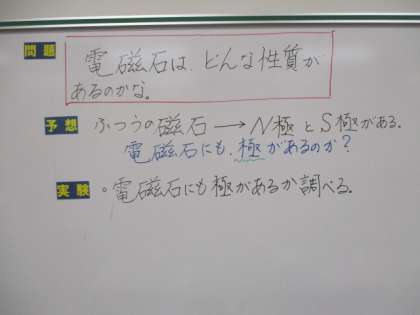 問題 電磁石は、どんな性質が
あるのかな。
予想 ふつうの磁石 → N極とS極がある。
電磁石にも、極があるのか?
実験 。電磁石にも極があるか調べる。